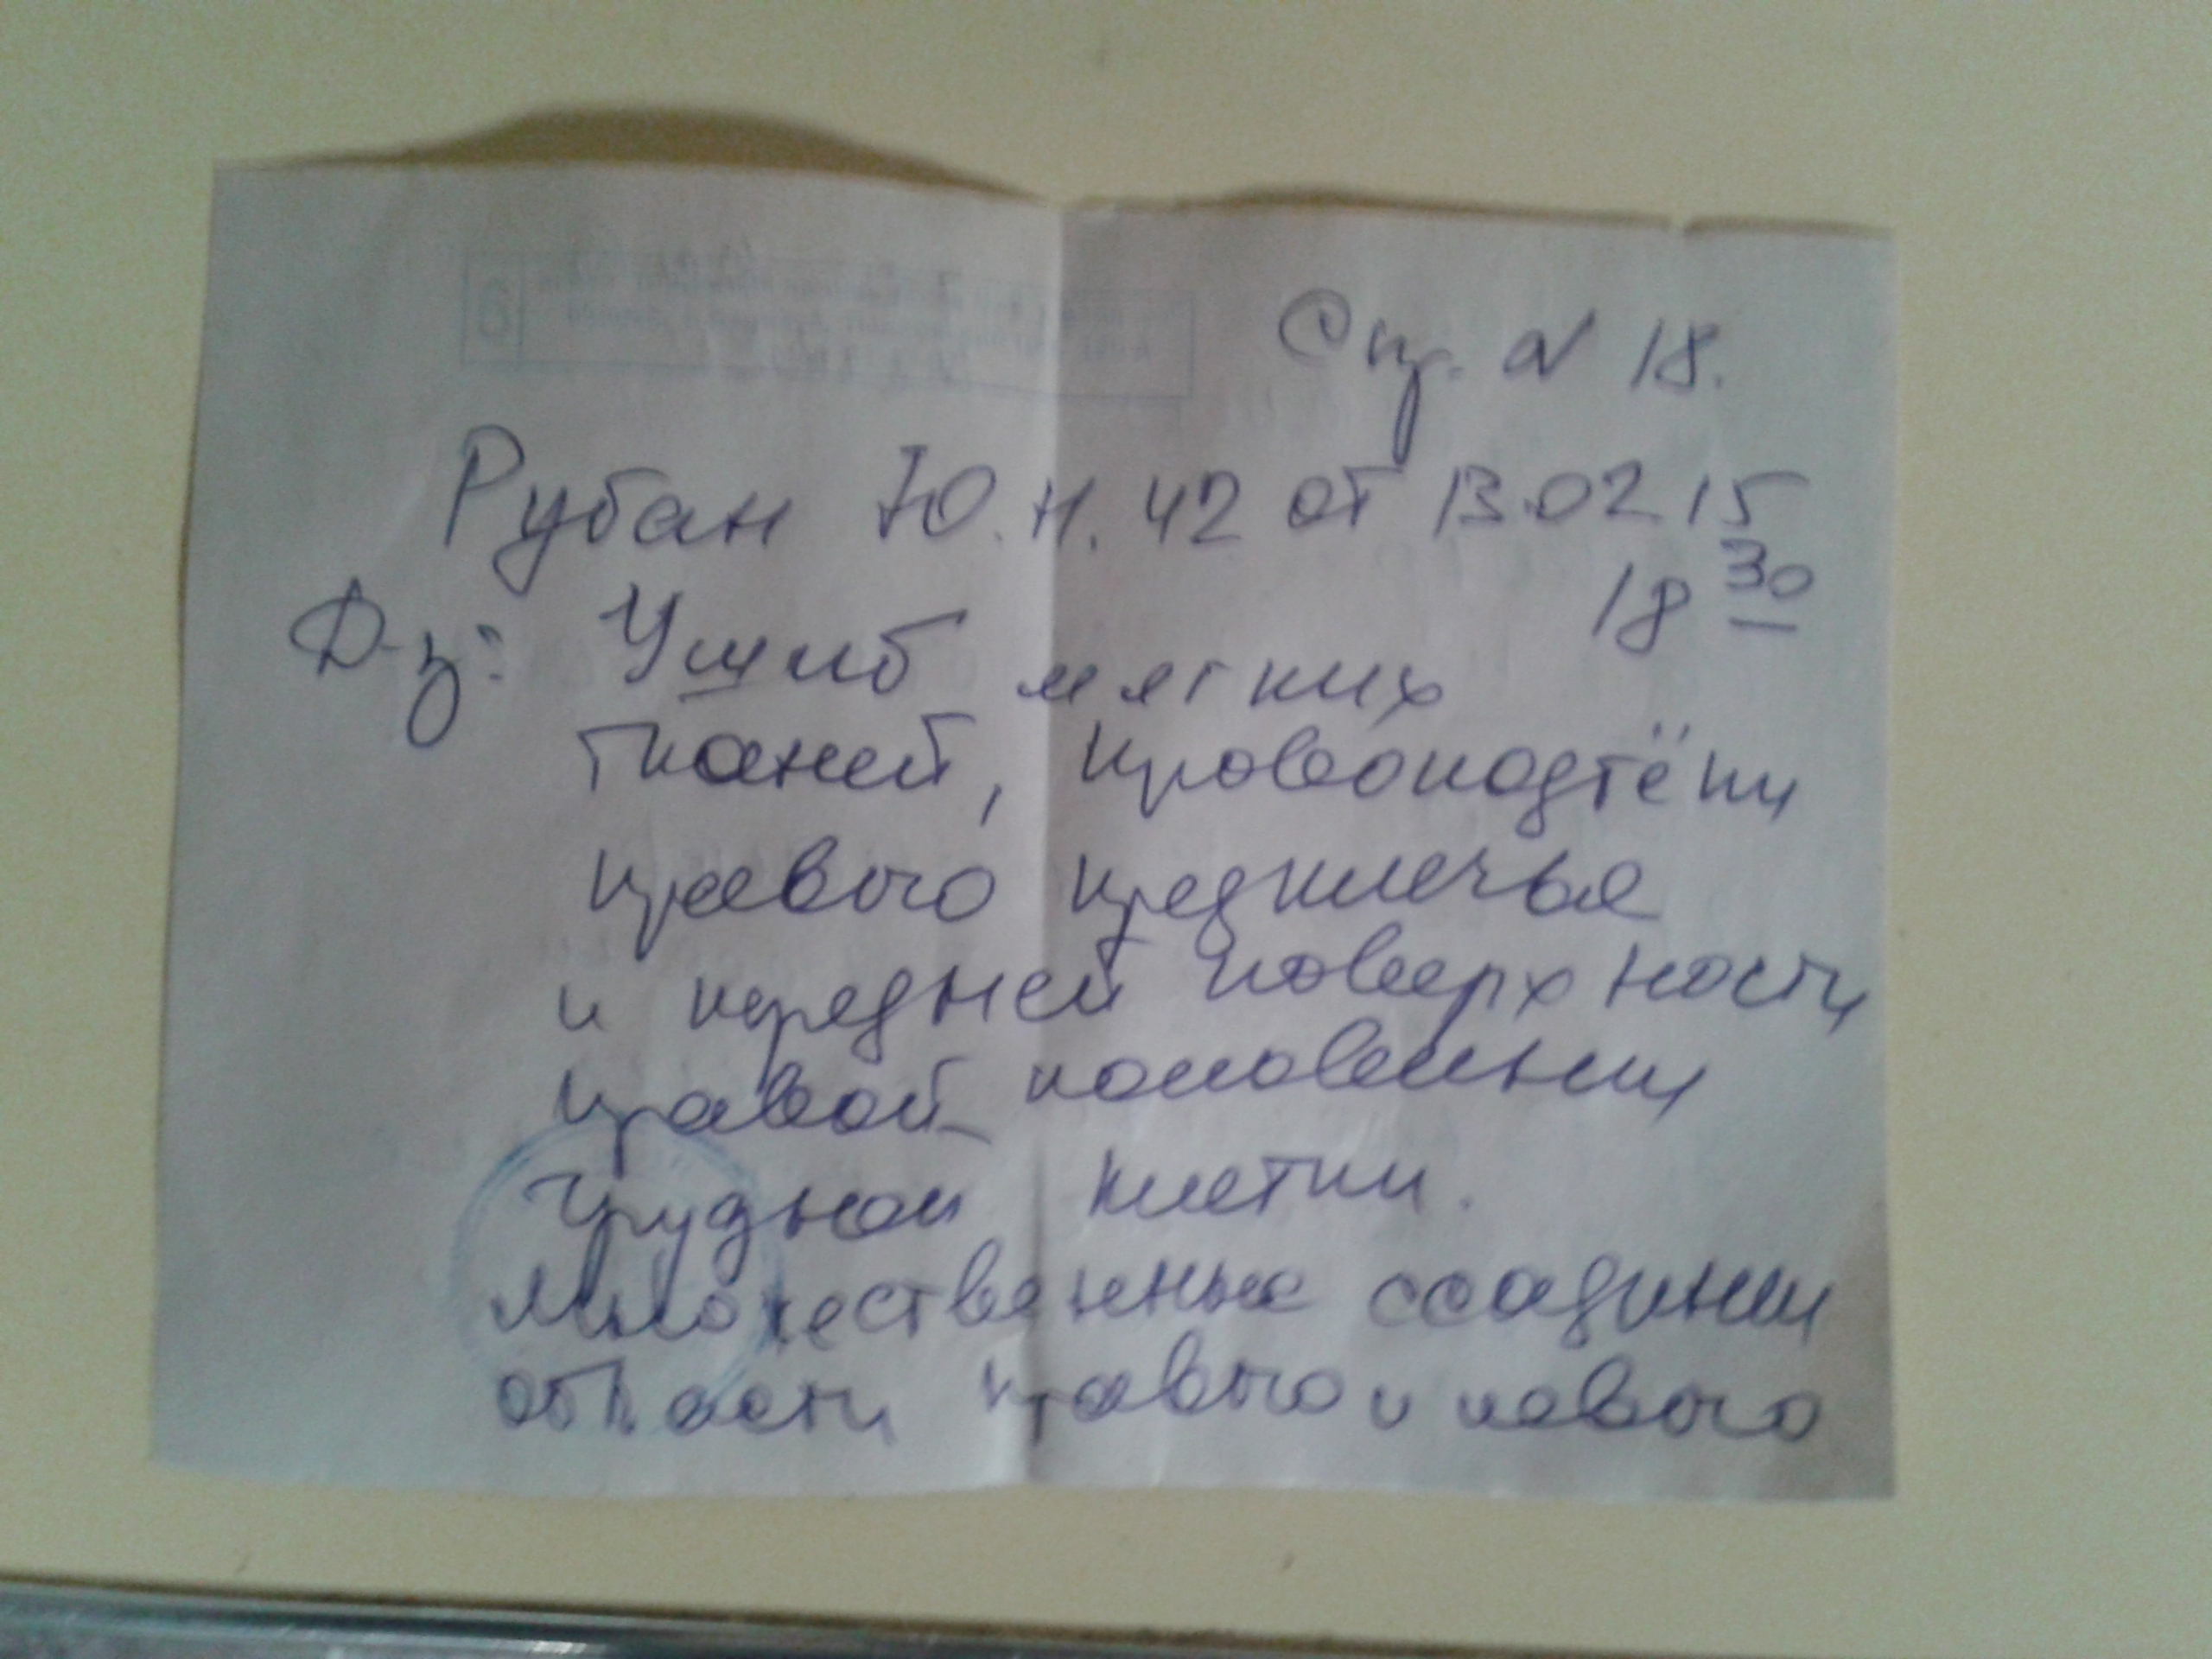 Спр. N 18.
Рубан Ю.Н. 42 от 13.02 15
18 30
Д-з: Ушиб мягких
тканей, кровоподтёки
правого предплечья
и передней поверхности
правой половины
грудной клетки.
Множественные ссадины
области правого и левого